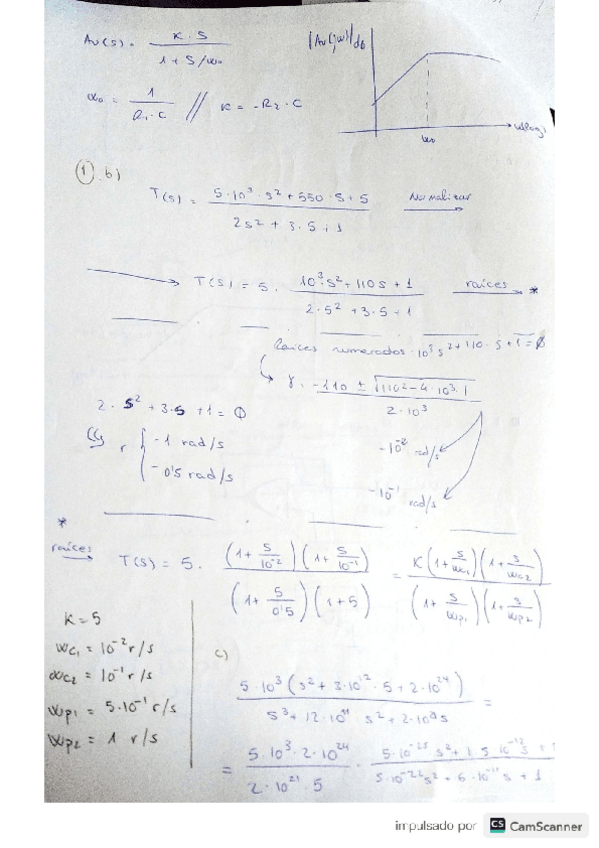 Av(s) = K·S / 1 + S/ωo
|Av(jω)|dB
ωo = 1 / R1·C // K = -R2·C
ω(log)
ωo
① b)
T(s) = 5·10³·s² + 550·s + 5 / 2s² + 3·s + 1
Normalizar
T(s) = 5 · 10³·s² + 110s + 1 / 2·s² + 3·s + 1
raíces *
Raíces numerados · 10³s² + 110·s + 1 = 0
r = -110 ± √110² - 4·10³·1 / 2·10³
2·s² + 3·s + 1 = 0
r { -1 rad/s
-0'5 rad/s
-10⁻² rad/s
-10⁻¹ rad/s
*
raíces
T(s) = 5 · (1 + s/10⁻²)(1 + s/10⁻¹) / (1 + s/0'5)(1+s) = K(1 + s/ωc1)(1 + s/ωc2) / (1 + s/ωp1)(1 + s/ωp2)
K = 5
ωc1 = 10⁻² r/s
ωc2 = 10⁻¹ r/s
ωp1 = 5·10⁻¹ r/s
ωp2 = 1 r/s
c)
5·10³(s² + 3·10¹²·s + 2·10²⁴) / s³ + 12·10¹¹·s² + 2·10²¹s =
= 5·10³·2·10²⁴ / 2·10²¹·s · 5·10⁻²⁵s² + 1'5·10⁻¹²s + 1 / 5·10⁻²²s² + 6·10⁻¹¹s + 1
impulsado por CS CamScanner